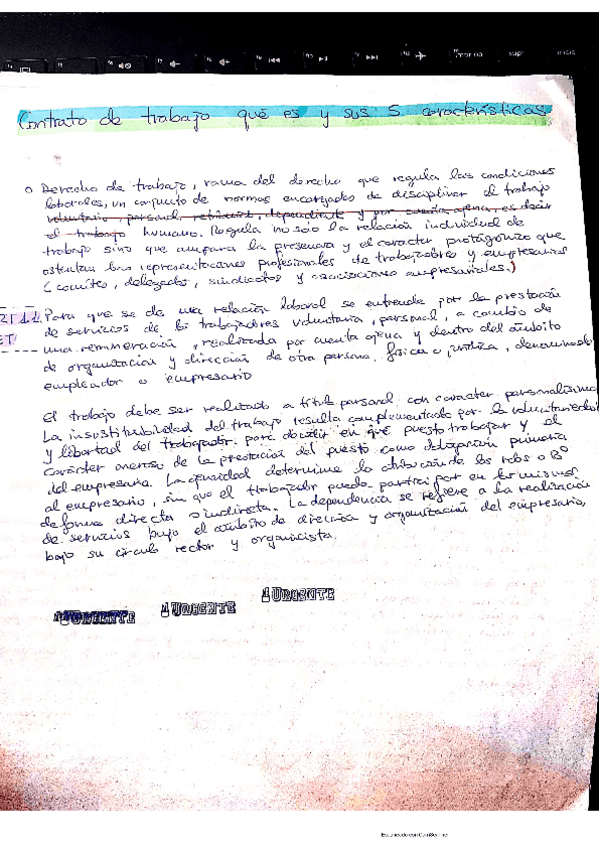 Contrato de trabajo qué es y sus 5 características
o Derecho de trabajo, rama del derecho que regula las condiciones
laborales, un conjunto de normas encargadas de disciplinar el trabajo
voluntario, personal, retribuido, dependiente y por cuenta ajena, es decir
el trabajo humano. Regula no solo la relación individual de
trabajo sino que ampara la presencia y el carácter protagónico que
ostentan las representaciones profesionales de trabajadores y empresarios
(comités, delegados, sindicatos y asociaciones empresariales.)
RT 1.1 Para que se de una relación laboral se entiende por la prestación
ET/ de servicios de los trabajadores voluntaria, personal, a cambio de
una remuneración, realizada por cuenta ajena y dentro del ámbito
de organización y dirección de otra persona, física o jurídica, denominado
empleador o empresario
El trabajo debe ser realizado a título personal con carácter personalísimo
La insustituibilidad del trabajo resulta complementado por la voluntariedad
y libertad del trabajador para decidir en qué puesto trabajar y el
carácter oneroso de la prestación del puesto como obligación primaria
del empresario. La ajenidad determina la atribución de los
al empresario, sin que el trabajador pueda participar en términos
de forma directa o indirecta. La dependencia se refiere a la realización
de servicios bajo el ámbito de dirección y organización del empresario,
bajo su círculo rector y organicista.
URGENTE URGENTE URGENTE
Escaneado con CamScanner